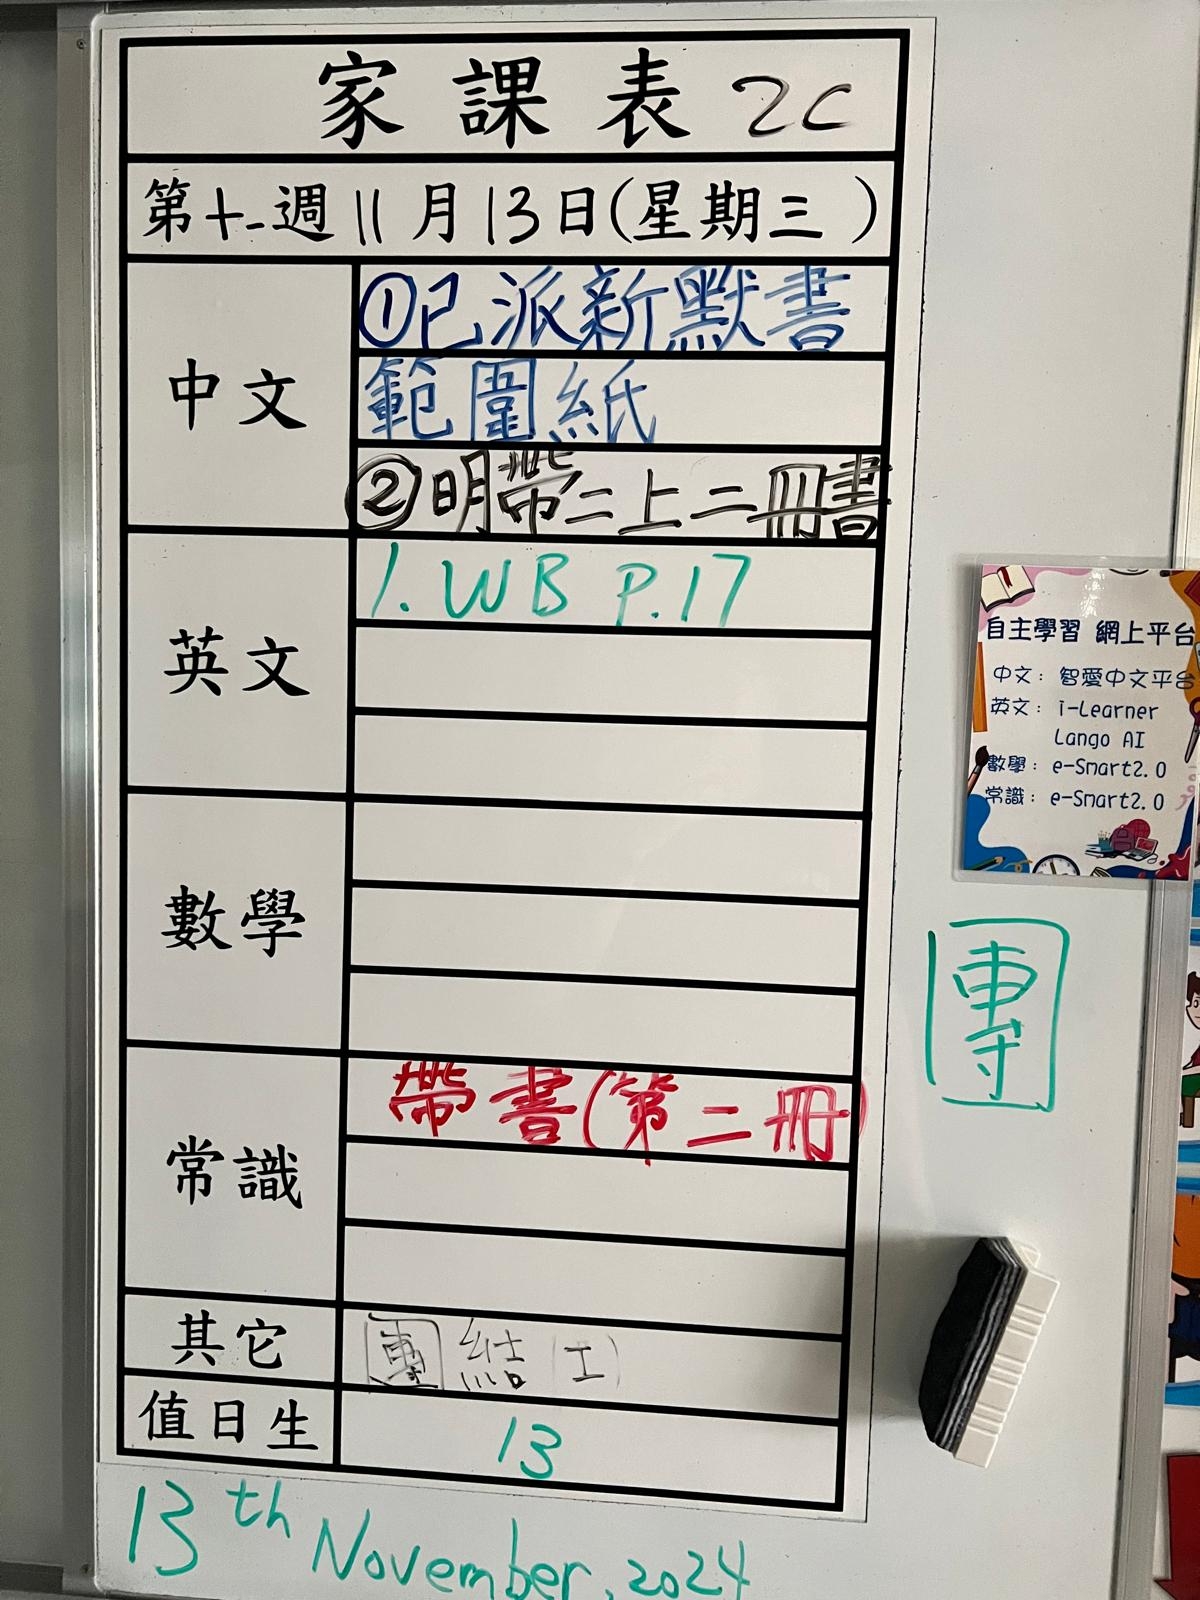 家課表 2C
第十一週11月13日(星期三)
中文
①已派新默書
範圍紙
②明帶二上二冊書
英文
1. WB P.17
數學
常識
帶書(第二冊)
其它
團結(工)
值日生
13
13th November, 2024
自主學習 網上平台
中文: 智愛中文平台
英文: i-Learner
Lango AI
數學: e-Smart2.0
常識: e-Smart2.0
團